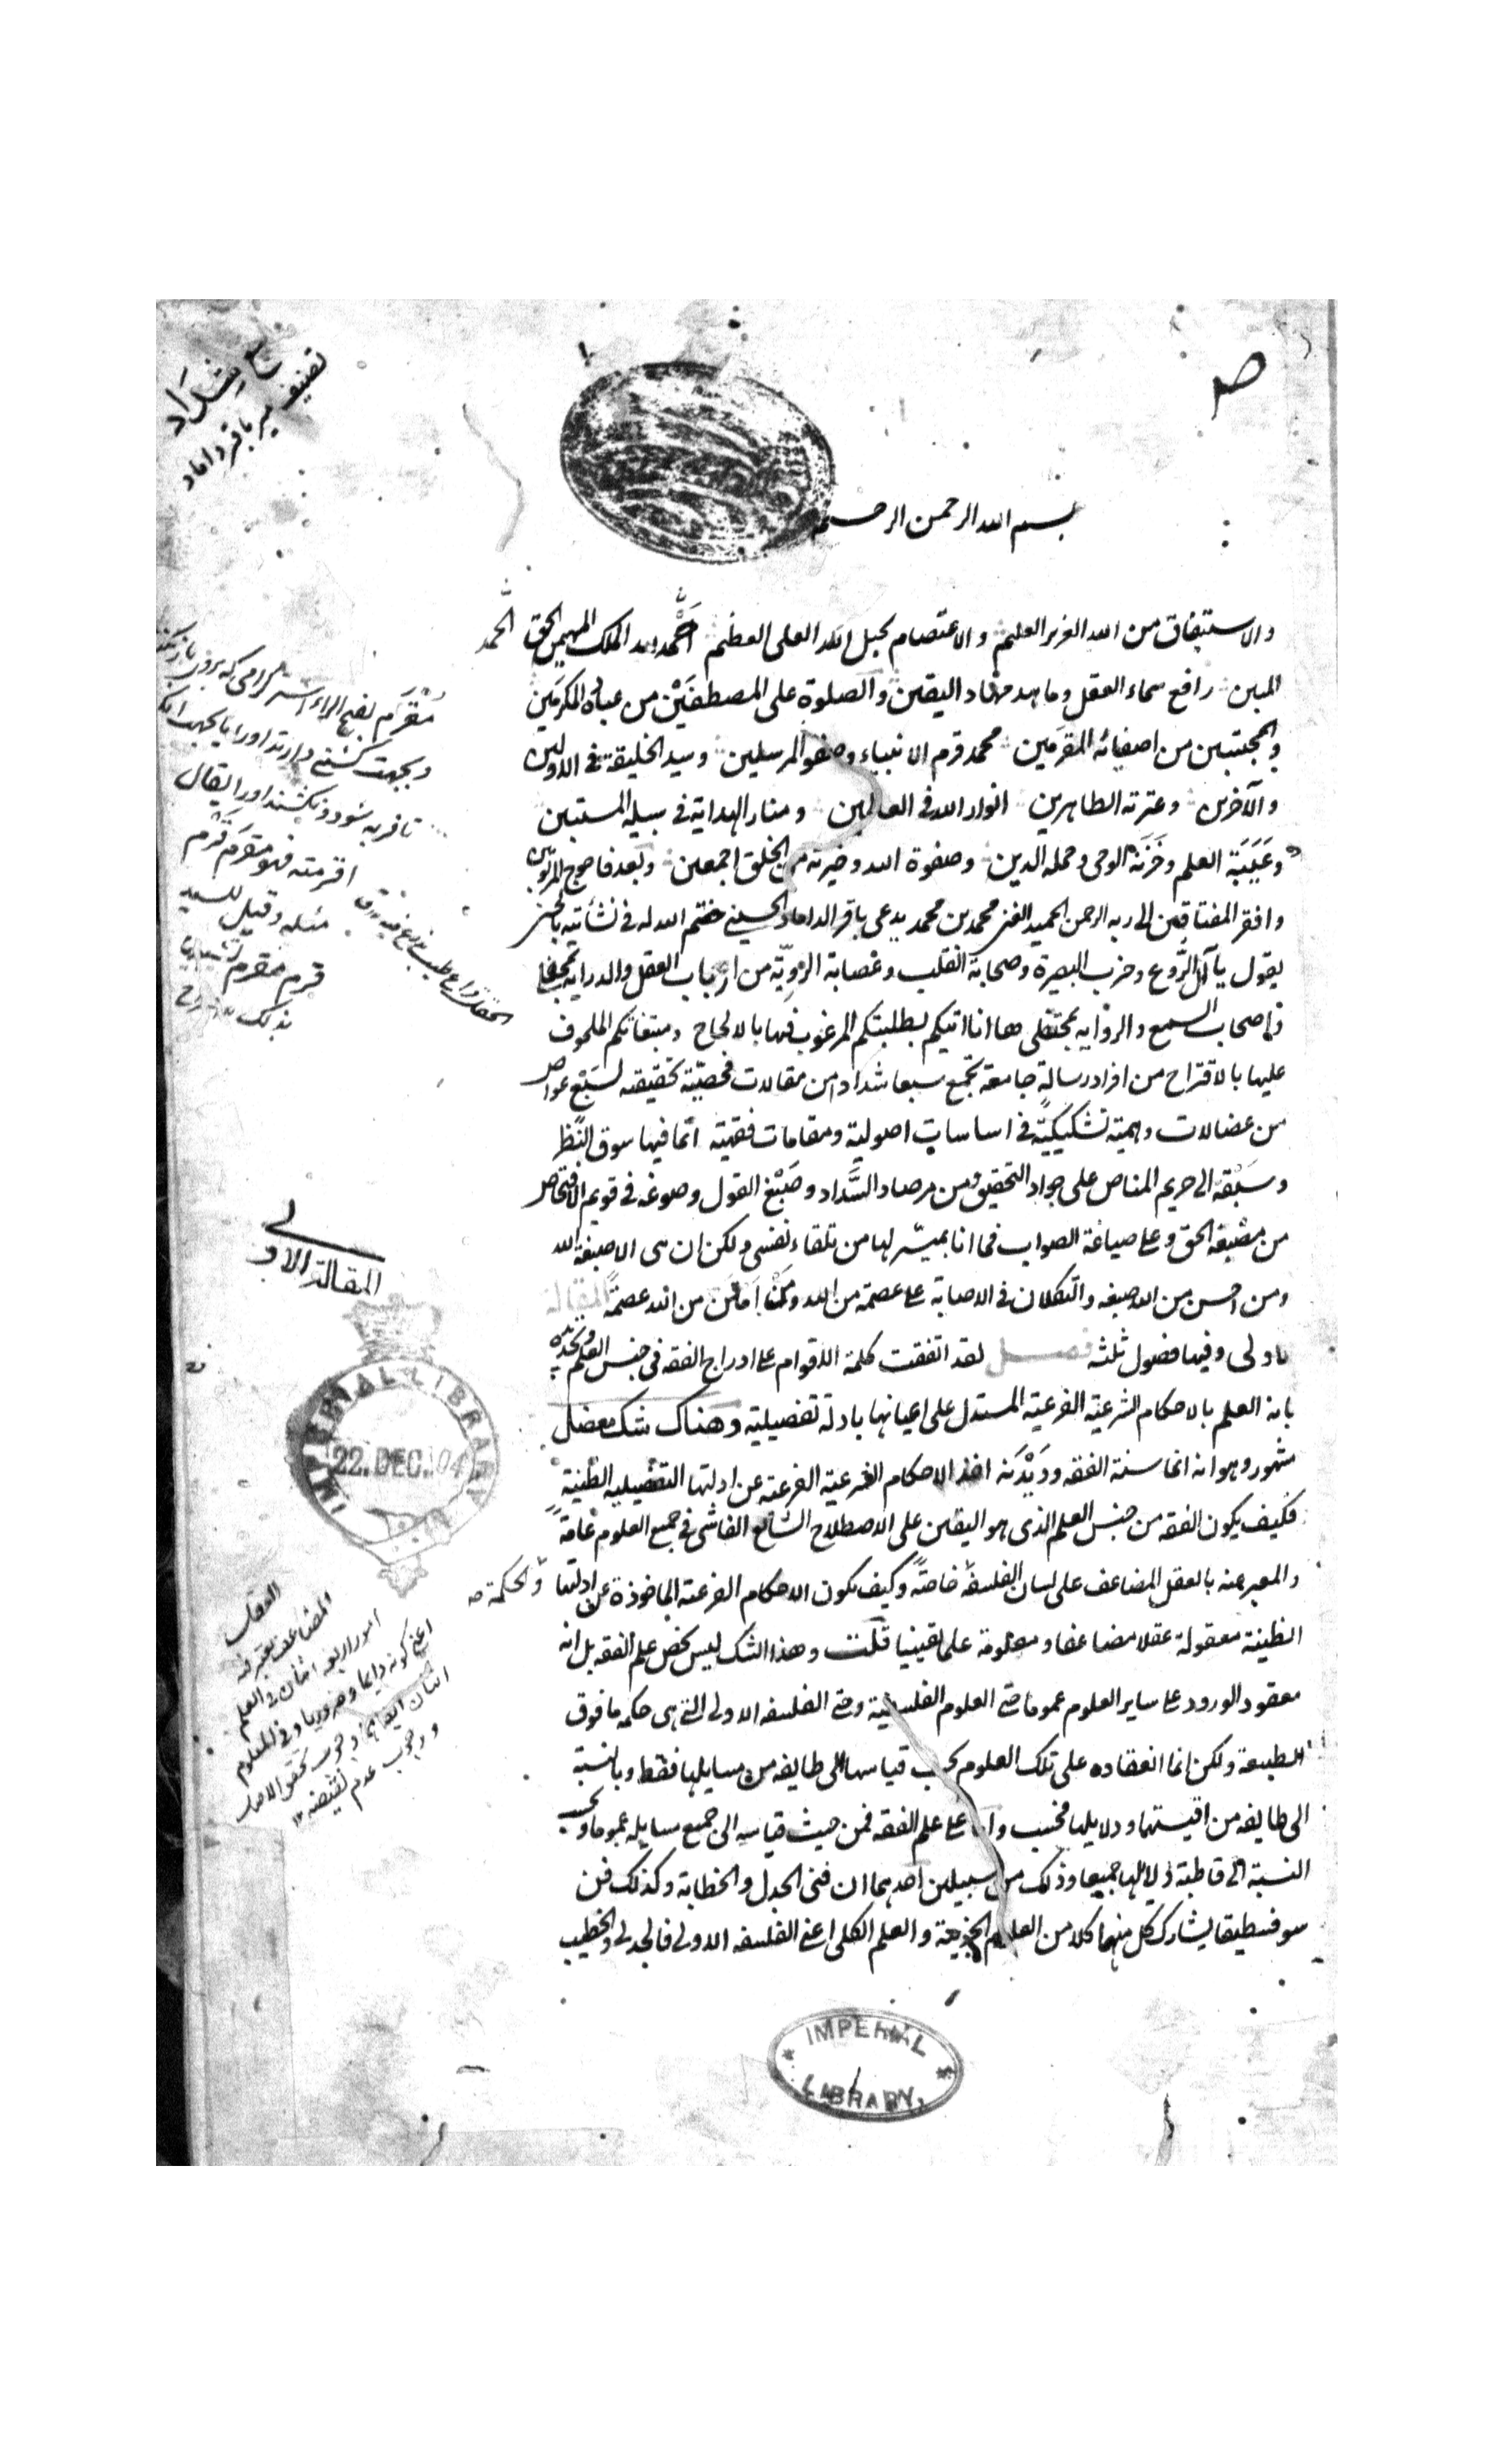 سبع شداد
تصنيف مير باقر داماد
بسم الله الرحمن الرحيم
والاستيفاق من الله العزيز العليم والاعتصام بحبل الله العلى العظيم الحمد لله الملك المهيمن الحق
المبين رافع سماء العقل وماهد مهاد اليقين والصلوة على المصطفين من عباده المكرمين
والمجتبين من اصفيائه المقرمين محمد قرم الانبياء وصفو المرسلين وسيد الخليقة فى الاولين
والآخرين وعترته الطاهرين انوار الله فى العالمين ومنار الهداية فى سبيله المستبين
وعيبة العلم وخزنة الوحى وحملة الدين وصفوة الله وخيرته من الخلق اجمعين وبعد فاحوج المربوبين
وافقر المفتاقين الى ربه الرحمن الحميد الغنى محمد بن محمد يدعى باقر الداماد الحسينى ختم الله له فى نشأتيه بالحسنى
يقول يا آل الروع وحزب البصيرة وصحابة القلب وعصابة الروية من ارباب العقل والدراية
اصحاب السمع والرواية ها انا اتيكم بطلبتكم المرغوب فيها بالالحاح ومبتغاتكم الملحوف
عليها بالاقتراح من افراد رسالة جامعة تجمع سبعا شدادا من مقالات فحصية تحقيقه لسبع عواص
من عضالات وهمية تشكيكية فى اساسات اصولية ومقامات فقهية انما فيها سوق النظر
وسبقه الى حريم المناص على جواد التحقيق ومن مرصاد السداد وصبغ القول وصوغه فى قويم الافتحاص
من مصبغة الحق وعلى صياغة الصواب فما انا بميسر لها من تلقاء نفسى ولكن ان هى الا صبغة الله
ومن احسن من الله صبغه والتكلان فى الاصابة على عصمة من الله ومن امتن من الله عصمة المقالة
الاولى وفيها فصول ثلثة فصل لقد اتفقت كلمة الاقوام على ادراج الفقه فى جنس العلم وتحديده
بانه العلم بالاحكام الشرعية الفرعية المستدل على اعيانها بادلة تفصيلية وهناك شك معضل
مشهور وهو انه انما سنة الفقه وديدنه اخذ الاحكام الشرعية الفرعية عن ادلتها التفصيليه الظنية
فكيف يكون الفقه من جنس العلم الذى هو اليقين على الاصطلاح الشائع الفاشى فى جميع العلوم عامة
والمعبر عنه بالعقل المضاعف على لسان الفلسفة خاصة وكيف يكون الاحكام الفرعية الماخوذة عن ادلتها
والحكمة
الظنية معقولة عقلا مضاعفا ومعلومة علما يقينيا قلت وهذا الشك ليس يخص علم الفقه بل انه
معقود الورود على ساير العلوم عموما حتى العلوم الفلسفية وحتى الفلسفه الاولى التى هى حكمة ما فوق
الطبيعة ولكن انما انعقاده على تلك العلوم بحسب قياسها الى طايفه من مسايلها فقط وبالنسبة
الى طايفه من اقيستها ودلايلها فحسب واما على علم الفقه فمن حيث قياسه الى جميع مسايله عموما وبحسب
النسبة الى قاطبة دلايلها جميعا وذلك من سبيلين احدهما ان فنى الجدل والخطابة وكذلك فن
سوفسطيقا يشارك كل منهما كلا من العلوم الجزيية والعلم الكلى اعنى الفلسفه الاولى فالجدلى والخطيب
مقرم بفتح الراء
اقرمته فهو مقرم
مثله وقيل للسيد
قرم مقرم تشبيها
بذلك
المقالة الاولى
العقل
المضاعف يعتبر فيه
امور اربعه اثنان فى العلم
اعنى كونه دايما وضروريا وفى المعلوم
اثنان
ووجوب عدم نقيضه
IMPERIAL LIBRARY
22. DEC. 04
IMPERIAL
LIBRARY